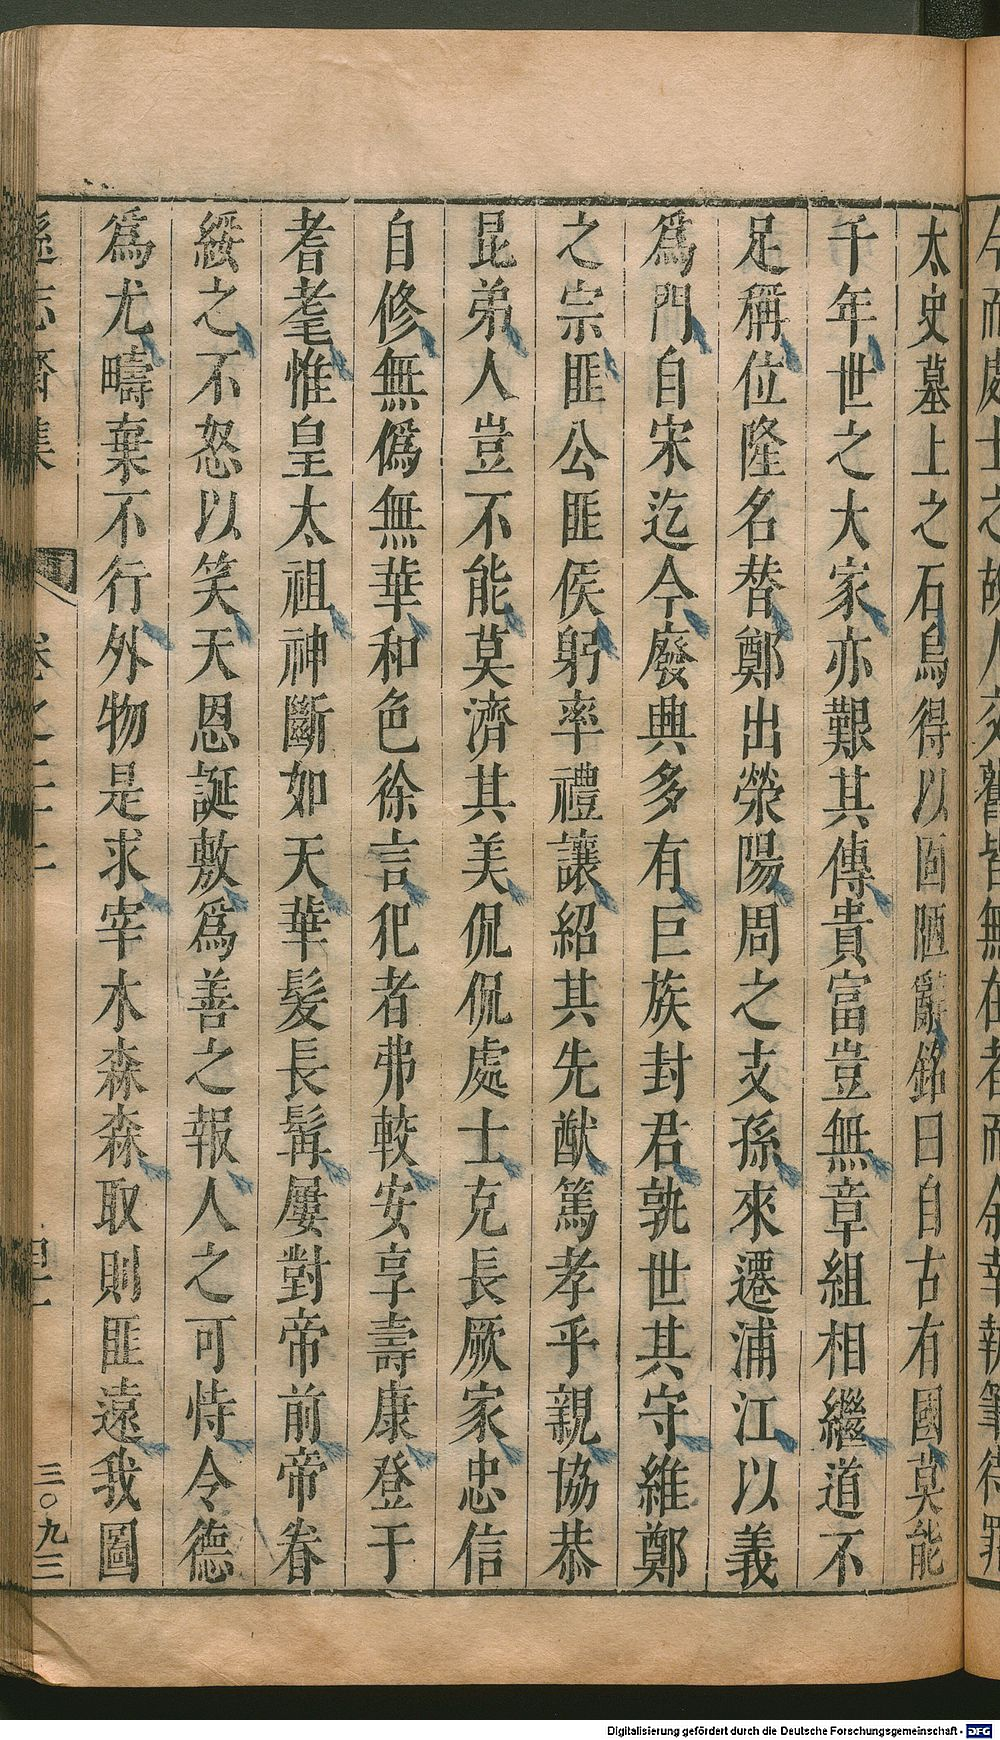 太史墓上之石烏得以固陋辭銘曰自古有國莫能
千年世之大家亦艱其傳貴富豈無章組相繼道不
足稱位隆名替鄭出滎陽周之支孫來遷浦江以義
爲門自宋迄今廢興多有巨族封君孰世其守維鄭
之宗匪公匪侯躬率禮讓紹其先猷篤孝乎親協恭
昆弟人豈不能莫濟其美侃侃處士克長厥家忠信
自修無僞無華和色徐言犯者弗較安享壽康登于
耆耄惟皇太祖神斷如天華髮長髯屢對帝前帝眷
綏之不怒以笑天恩誕敷爲善之報人之可恃令德
爲尤疇棄不行外物是求宰木森森取則匪遠我圖
遜志齋集
卷之二十二
三〇九三
Digitalisierung gefördert durch die Deutsche Forschungsgemeinschaft - DFG